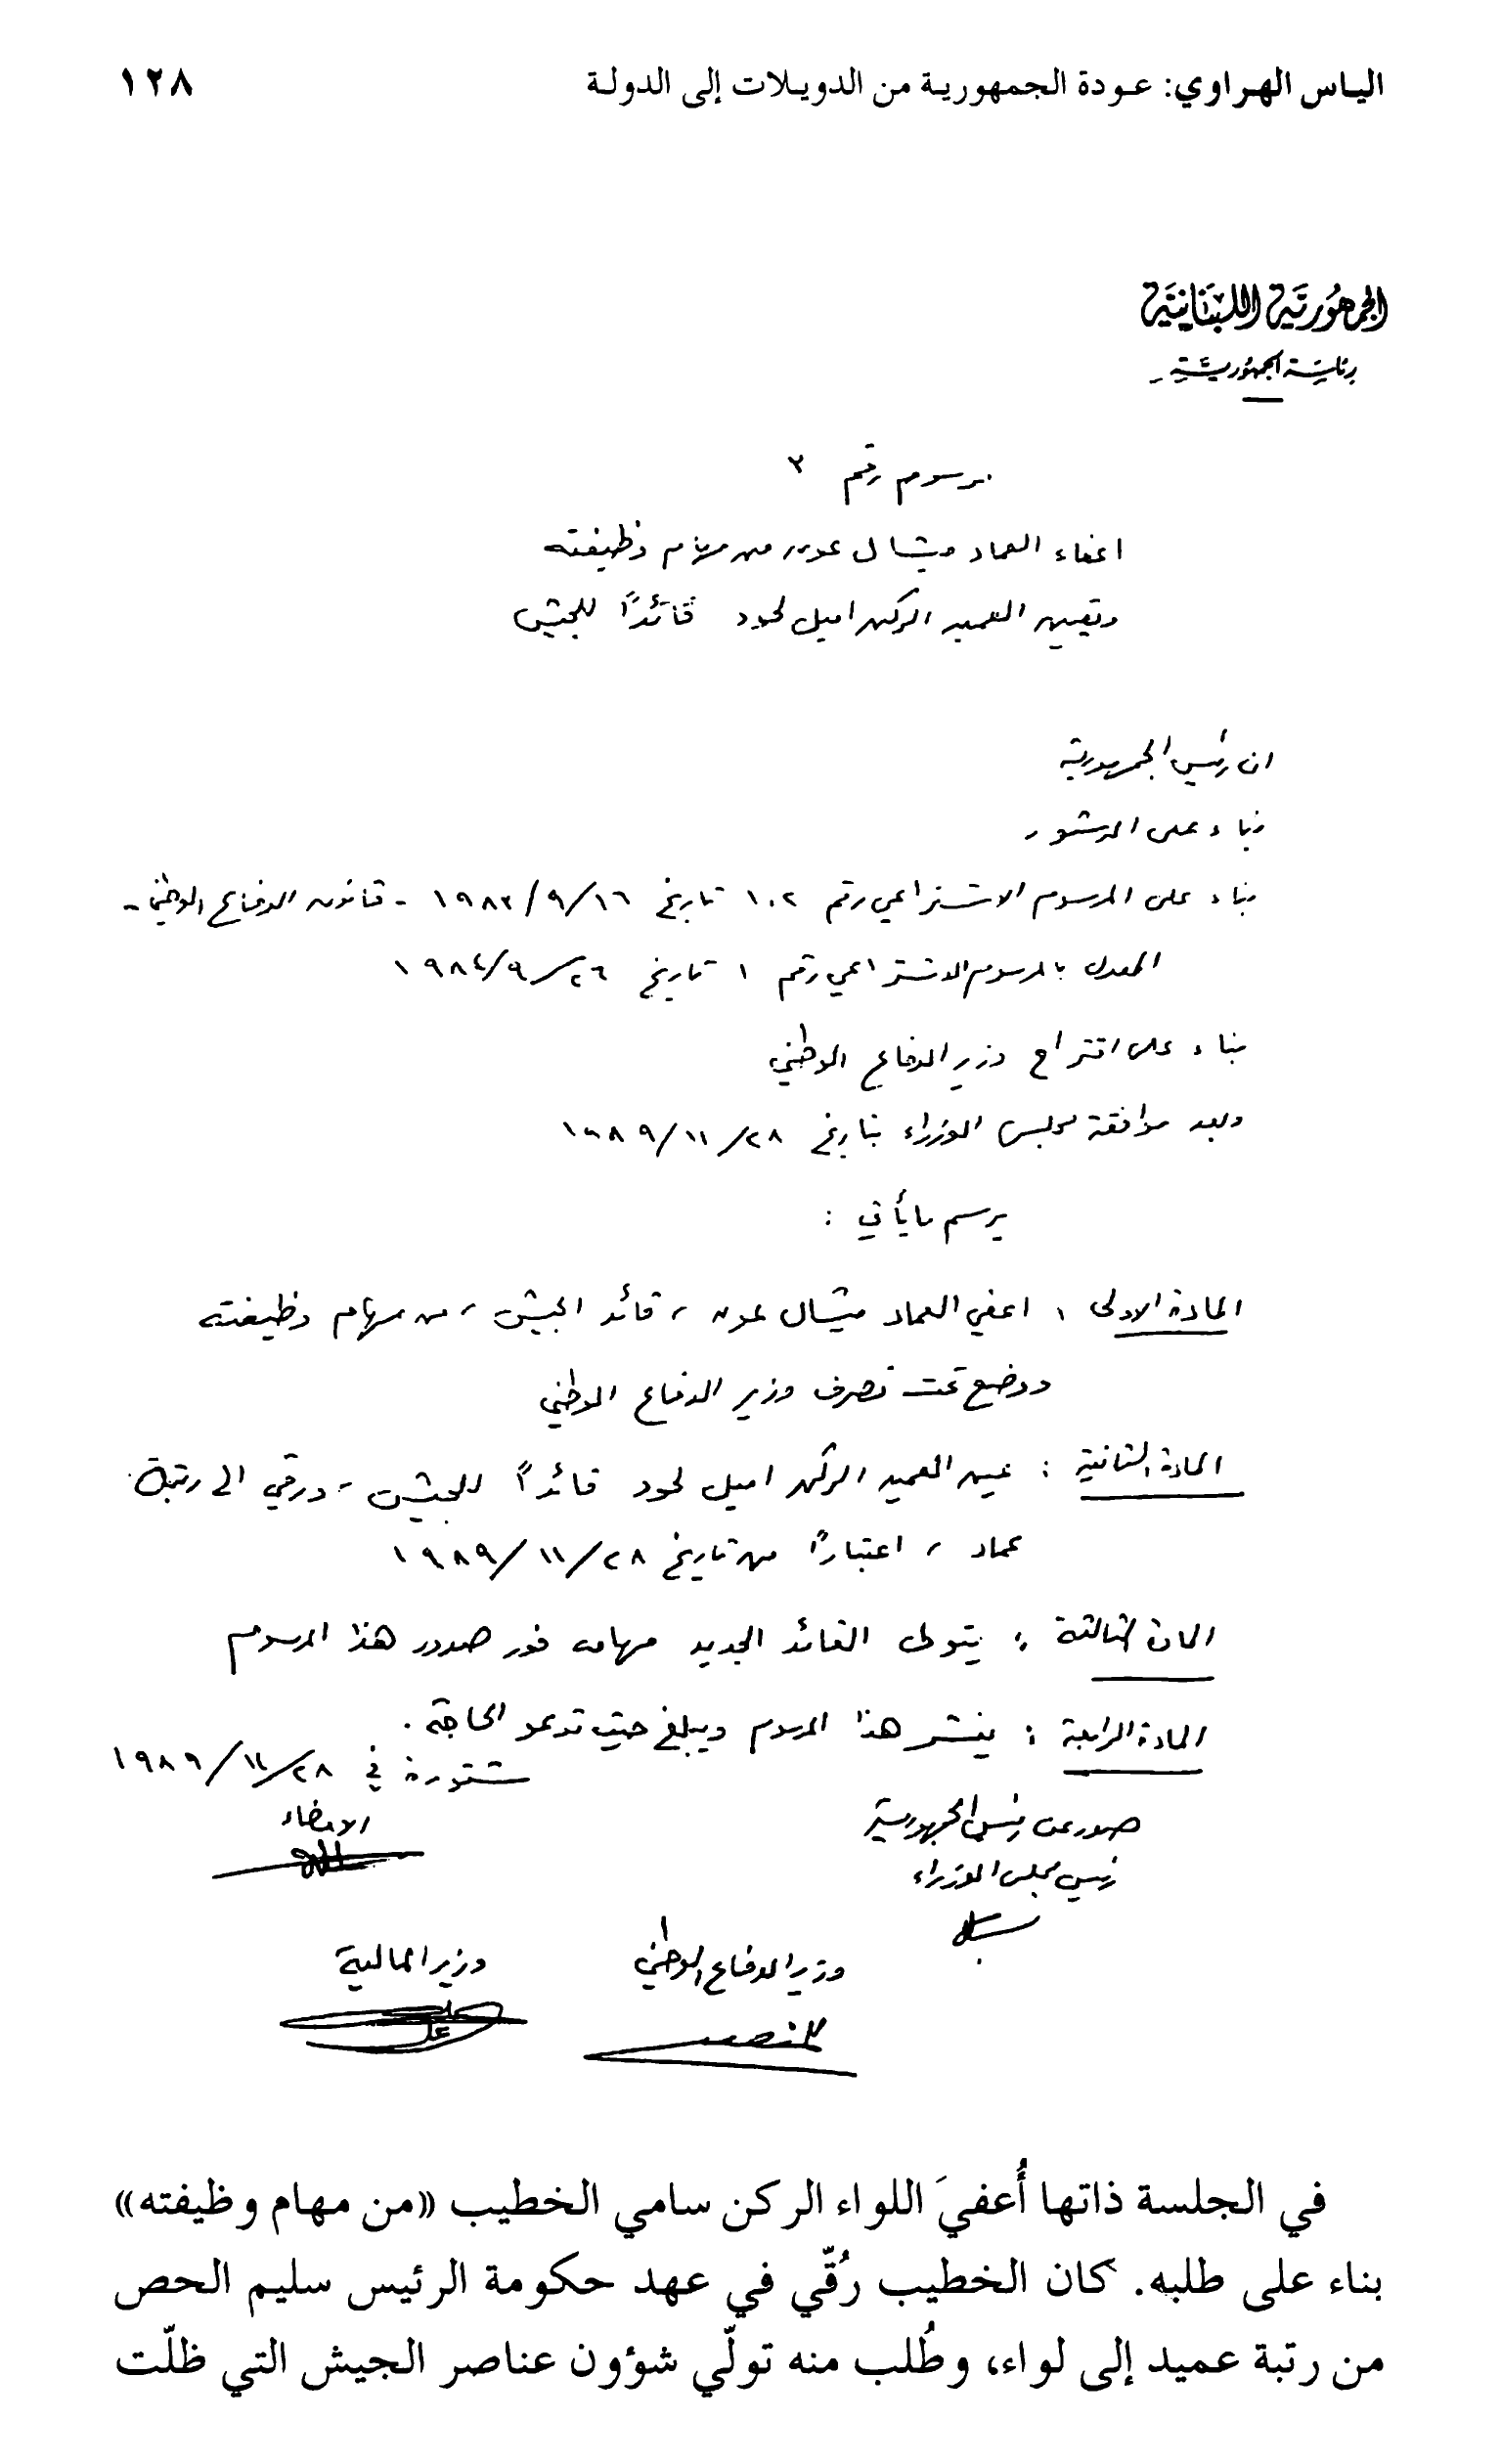 الياس الهراوي: عودة الجمهورية من الدويلات إلى الدولة
١٢٨
الجمهورية اللبنانية
رئاسة الجمهورية
مرسوم رقم ٢
اعفاء العماد ميشال عون من مهام وظيفته
وتعيين العميد الركن اميل لحود قائداً للجيش
ان رئيس الجمهورية
بناء على الدستور
بناء على المرسوم الاشتراعي رقم ١٠٢ تاريخ ١٦/٩/١٩٨٣ - قانون الدفاع الوطني -
المعدل بالمرسوم الاشتراعي رقم ١ تاريخ ٢٦/٩/١٩٨٤
بناء على اقتراح وزير الدفاع الوطني
وبعد موافقة مجلس الوزراء بتاريخ ٢٨/١١/١٩٨٩
يرسم ما يأتي :
المادة الاولى : اعفي العماد ميشال عون ، قائد الجيش ، من مهام وظيفته
ووضع تحت تصرف وزير الدفاع الوطني
المادة الثانية : عين العميد الركن اميل لحود قائداً للجيش - ورقي الى رتبة
عماد ، اعتباراً من تاريخ ٢٨/١١/١٩٨٩
المادة الثالثة : يتولى القائد الجديد مهامه فور صدور هذا المرسوم
المادة الرابعة : ينشر هذا المرسوم ويبلغ حيث تدعو الحاجة .
شتورة في ٢٨/١١/١٩٨٩
صدر عن رئيس الجمهورية
الامضاء
رئيس مجلس الوزراء
وزير الدفاع الوطني
وزير المالية
في الجلسة ذاتها أُعفيَ اللواء الركن سامي الخطيب «من مهام وظيفته»
بناء على طلبه. كان الخطيب رُقّي في عهد حكومة الرئيس سليم الحص
من رتبة عميد إلى لواء، وطُلب منه تولّي شؤون عناصر الجيش التي ظلّت